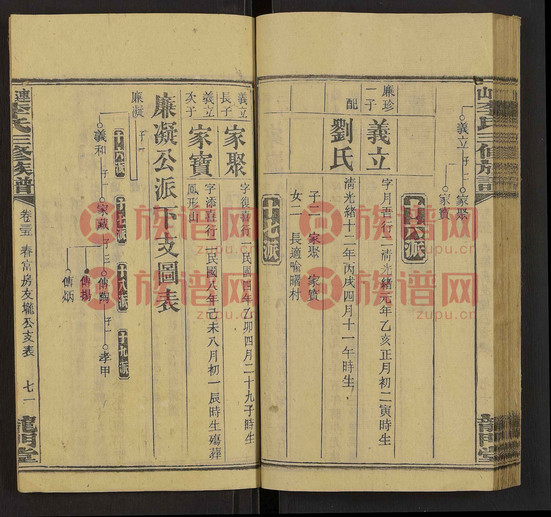 義立
家聚
家寶
十六派
廉珍一子
義立 字月喜行二清光緒元年乙亥正月初二寅時生
配
劉氏 清光緒十二年丙戌四月十一午時生
子二 家聚 家寶
女二 長適喻曙村
十七派
義立長子
家聚 字復喜行一民國四年乙卯四月二十九子時生
義立次子
家寶 字添喜行二民國八年己未八月初一辰時生殤葬鳳形山
廉凝公派下支圖表
十六派
十七派
十八派
十九派
廉凝
子一
義和
子一
家藏
子三
傳鸚
子一
孝甲
傳揚
傳炳
李氏三修族譜
卷三 春富房友權公支表 七一
龍門堂
族谱网
zupu.cn